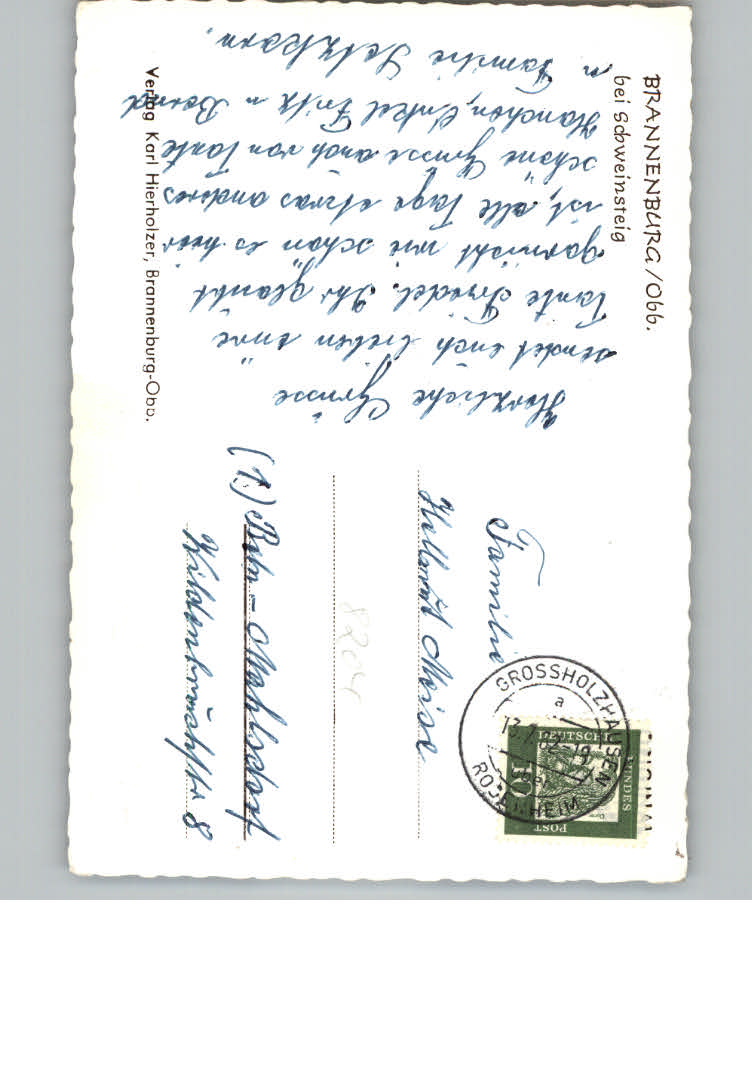 BRANNENBURG/Obb.
bei Schweinsteig
Herzliche Grüsse
sendet euch lieben eure
Tante Friedel. Ihr glaubt
garnicht wie schön es hier
ist, alle Tage etwas anderes
schöne Grüsse auch von Tante
Hanchen, Onkel Fritz u Bernd
u Familie
Verlag Karl Hierholzer, Brannenburg-Obb.
Familie
Hellmut Meise
8204
(1.) Bln - Mahlsdorf
8
GROSSHOLZHAUSEN
a
13.7.62-19
ROSENHEIM
DEUTSCHE
BUNDES
POST
10